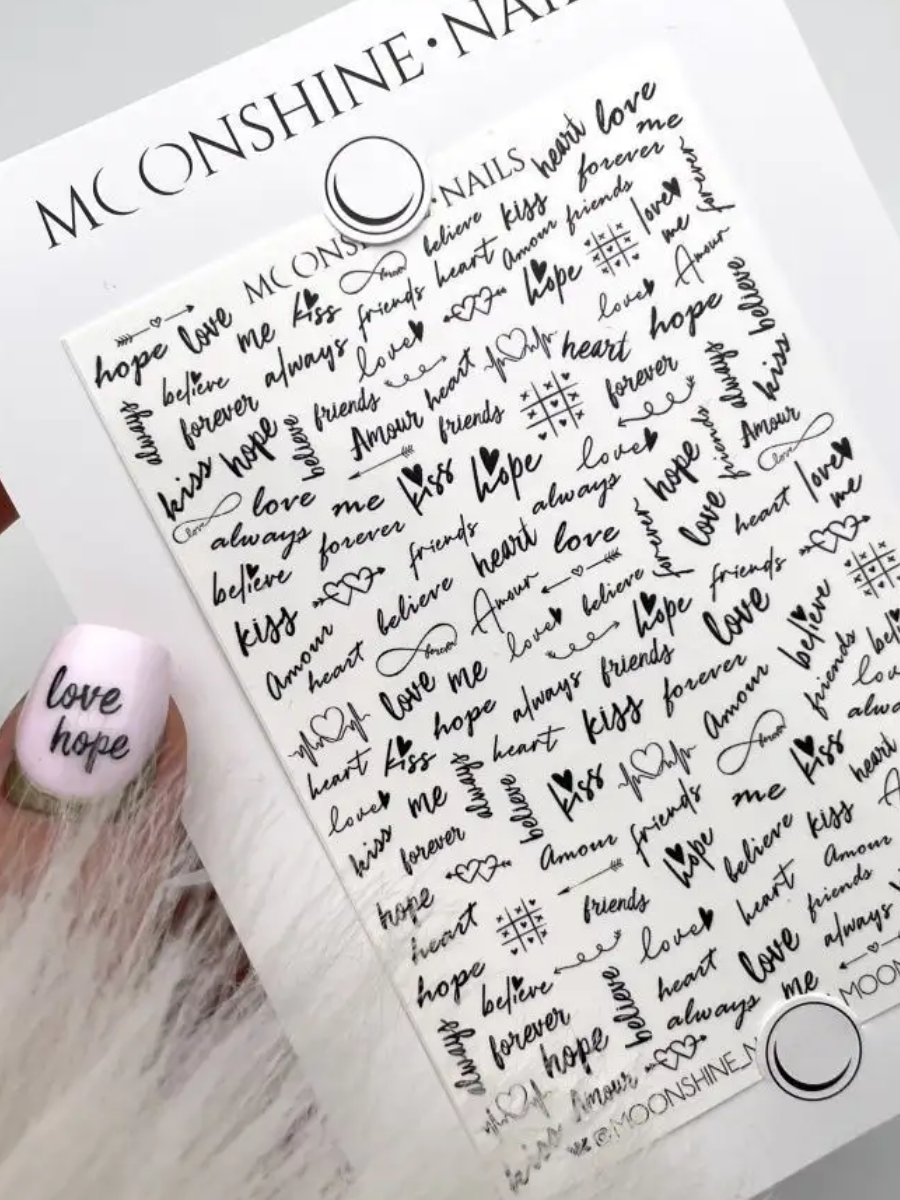 MOONSHINE·NAI
MOONS ·NAILS
heart love
me
believe kiss forever
forever
hope love me kiss forever
friends heart Amour friends
love me
believe always
love
hope
Amour
always
forever
love
hope
believe
friends Amour heart
heart
forever
kiss hope believe
friends
always kiss
love
love me kiss hope love
friends
Amour
love
always forever always hope
love
love
me
believe friends heart love forever
heart
kiss heart believe Amour believe
friends
Amour
forever
love
hope love
believe
love me
always friends
friends
heart kiss hope
heart kiss forever Amour
love
always
believe
kiss
forever
kiss
heart
love
hope
kiss me
forever
Amour friends me
kiss
hope
believe
Amour
heart
friends
hope
heart
friends
hope believe
love
love
always
always forever
believe
heart
always me
hope
MOON
kiss Amour
@MOONSHINE_N
love
hope